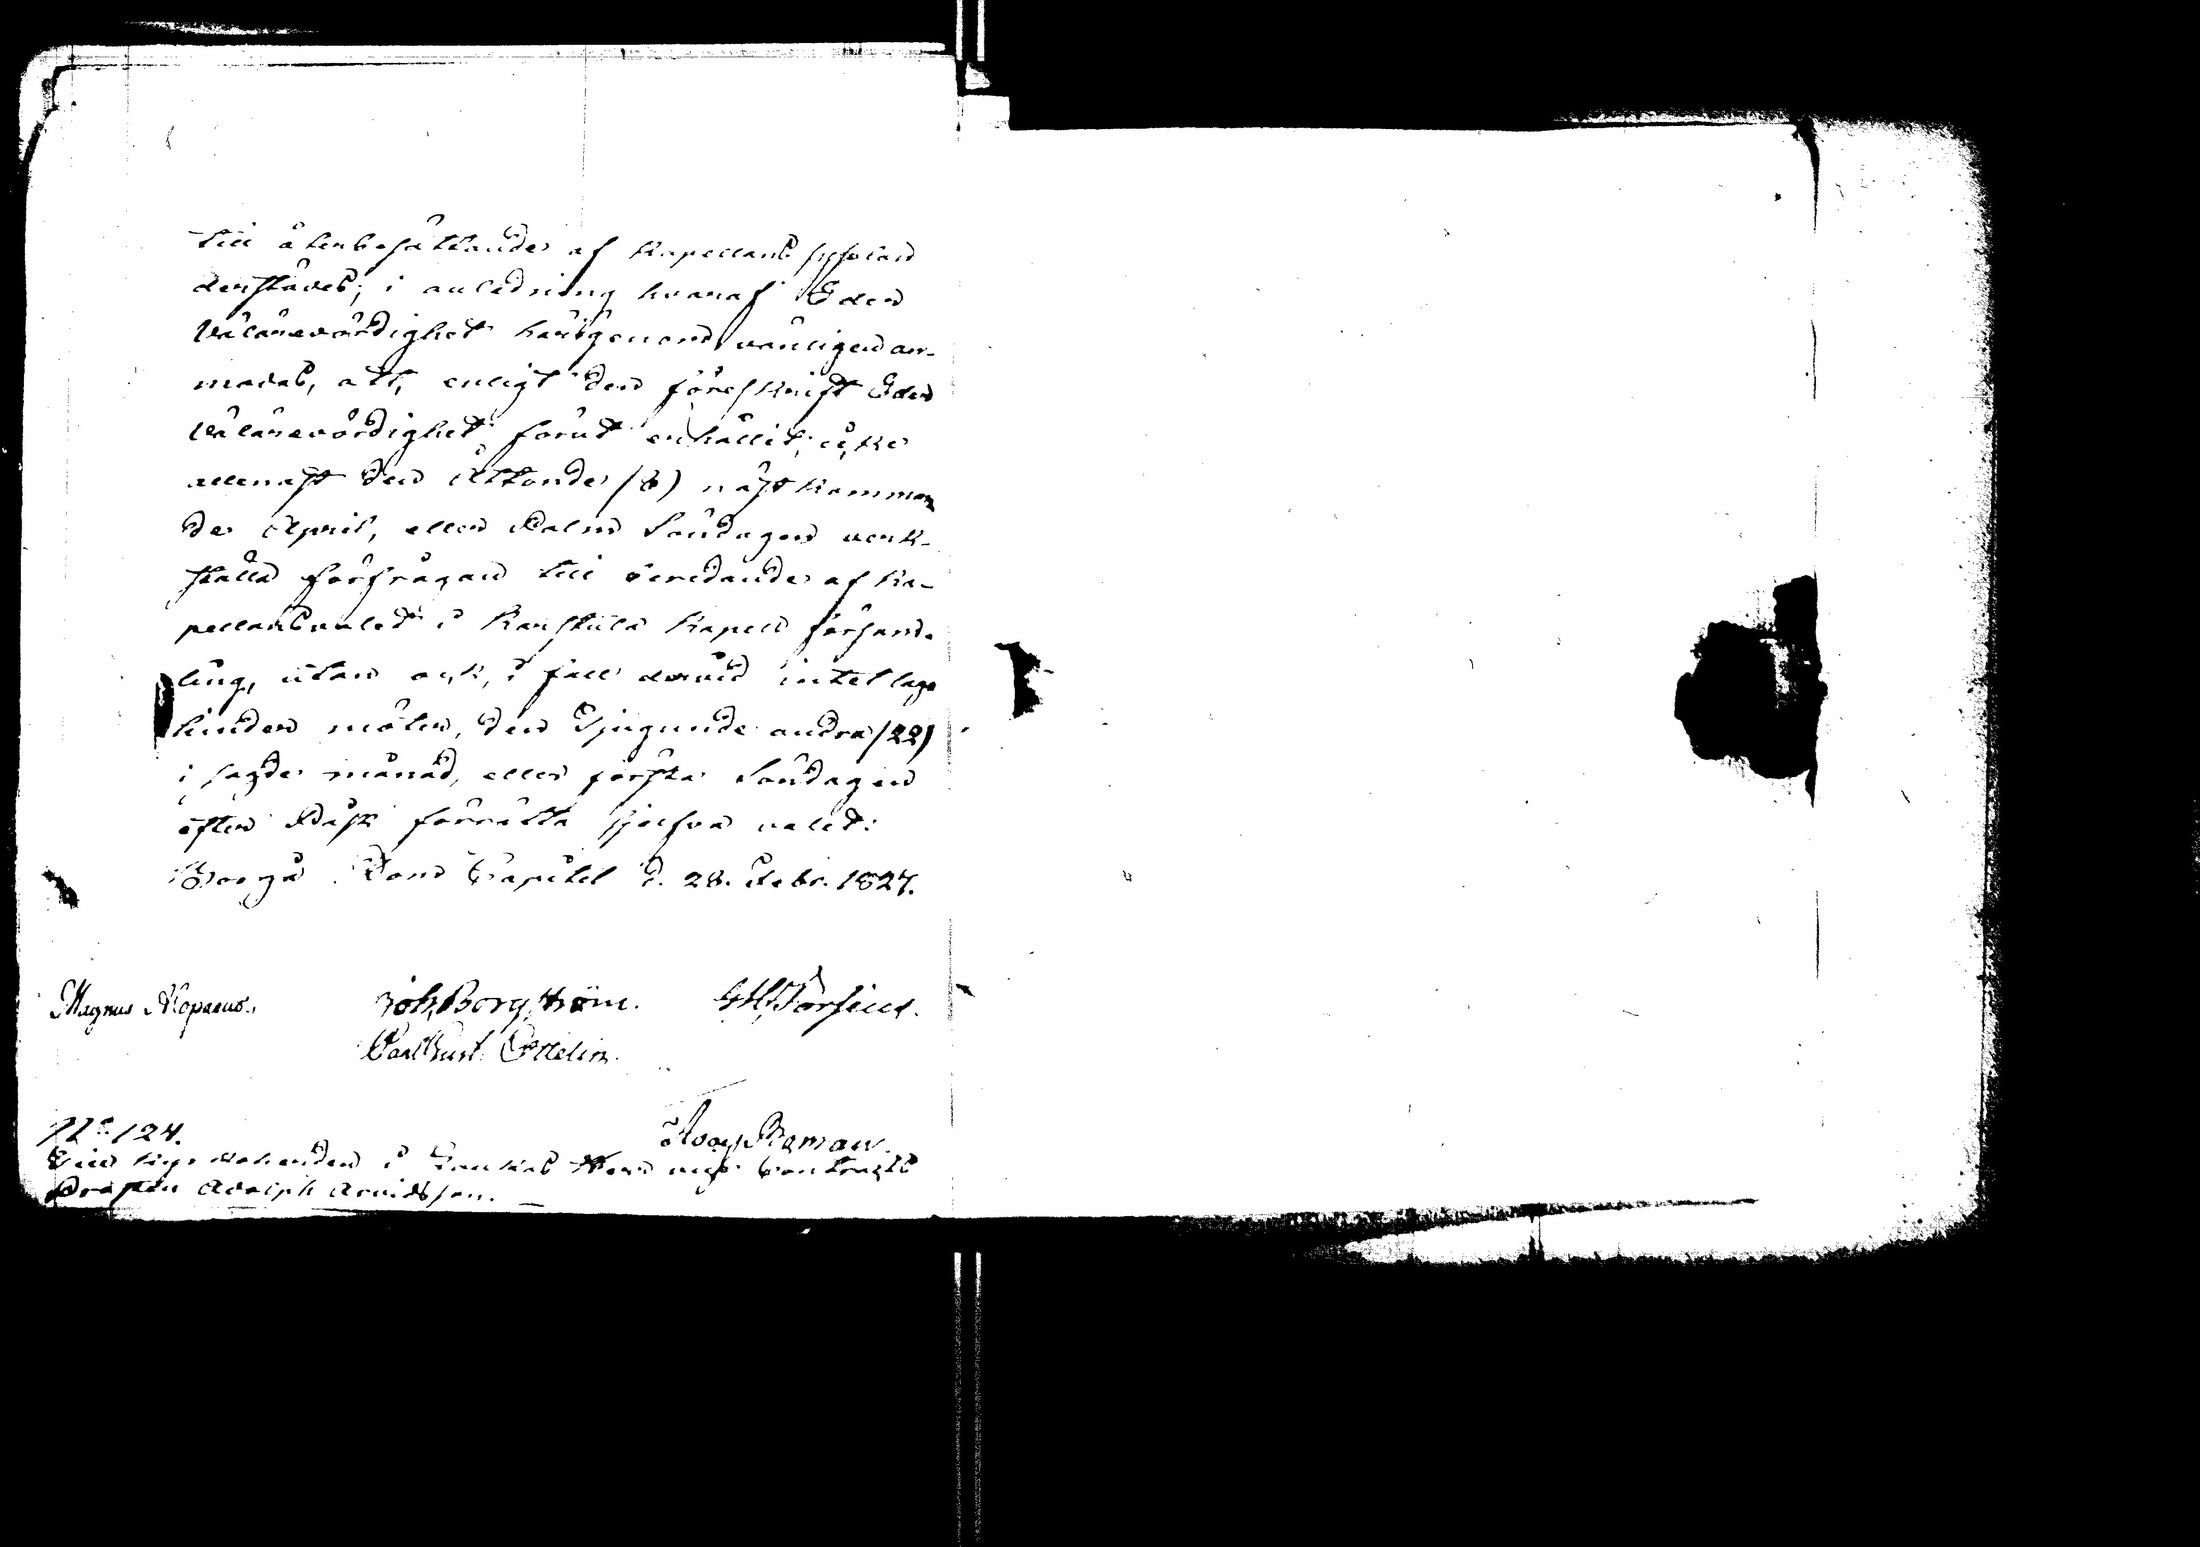 till återbesättande af Kapellans sysslan
derstädes; i anledning hvaraf Eder
Välärevördighet härigenom vänligen an-
modas, att, enligt den föreskrift Eder
Välärevördighet förut erhållit, icke
allenast den Åttonde /8/ nästkomman
de April, eller Palm Söndagen verk-
ställa förfrågan till beredande af Ka-
pellansvalet i Karstula Kapell försam-
ling, utan ock, i fall dervid intet laga
hinder möter, den Tjugunde andra /22/
i sagde månad, eller första Söndagen
efter Påsk förrätta sjelfva valet.
Borgå Dom Capitel d. 28. Febr. 1827.
Magnus Alopaeus. Joh. Borgström.
Carl Gust. Ottelin.
No 124.
Till Kyrkoherden i Laukas Herr Contracts
Prosten Adolph Arvidsson.